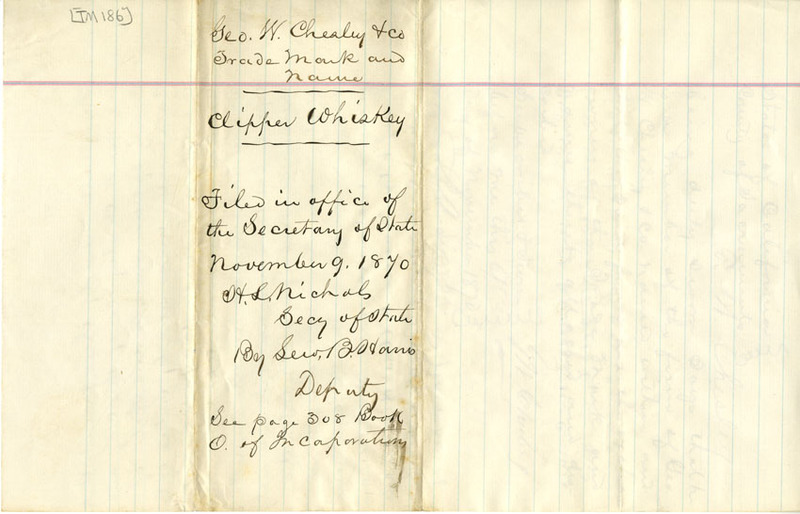 [TM 186]
Geo. W. Chesley & co
Trade Mark and
Name
Clipper Whiskey
Filed in office of
the Secretary of State
November 9. 1870
H. L. Nichols
Secy of State
By Geo. B. Harris
Deputy
See page 308 Book
O. of Incaporations